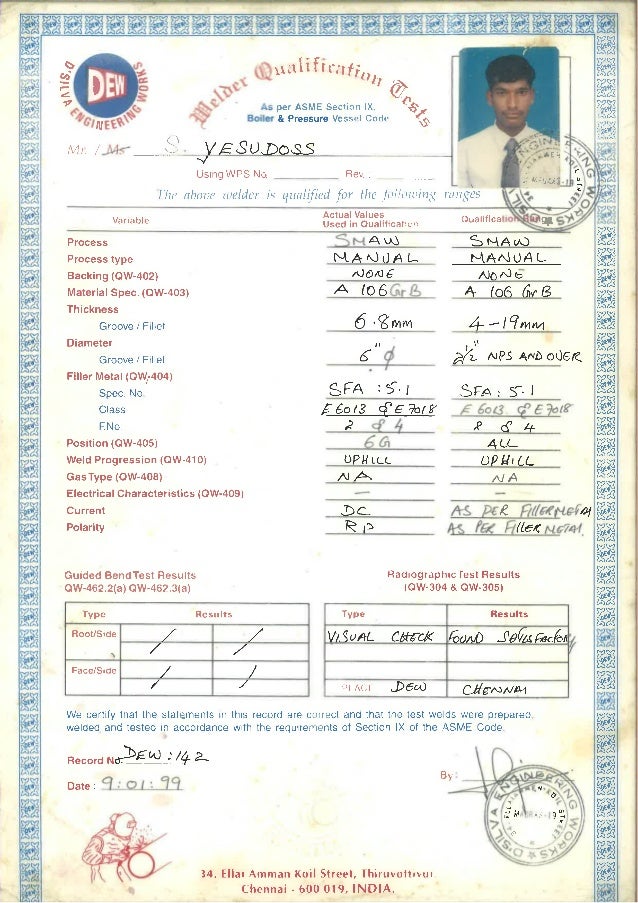 D'SILVA ENGINEERING WORKS
DEW
Welder Qualification Tests
As per ASME Section IX,
Boiler & Pressure Vessel Code
Mr. / Ms S. YESUDOSS
Using WPS No. Rev.
The above welder is qualified for the following ranges
Variable Actual Values Used in Qualification Qualification
Process SMAW SMAW
Process type MANUAL MANUAL
Backing (QW-402) NONE NONE
Material Spec. (QW-403) A 106 GrB A 106 GrB
Thickness
Groove / Fillet 6.8mm 4-19mm
Diameter
Groove / Fillet 6" ϕ 2½" NPS AND OVER
Filler Metal (QW-404)
Spec. No. SFA : 5.1 SFA : 5.1
Class E 6013 & E 7018 E 6013 & E 7018
F.No 2 & 4 2 & 4
Position (QW-405) 6G ALL
Weld Progression (QW-410) UPHILL UPHILL
Gas Type (QW-408) NA NA
Electrical Characteristics (QW-409) —
Current DC AS PER FILLERMETAL
Polarity RP AS PER FILLER METAL.
Guided Bend Test Results
QW-462.2(a) QW-462.3(a)
Type Results
Root/Side / /
Face/Side / /
Radiographic Test Results
(QW-304 & QW-305)
Type Results
VISUAL CHECK FOUND Satisfactory
PLACE DEW CHENNAI
We certify that the statements in this record are correct and that the test welds were prepared,
welded and tested in accordance with the requirements of Section IX of the ASME Code.
Record No. DEW : 142
Date : 9:01:99
By :
D'SILVA ENGINEERING WORKS
34, Ellai Amman Koil Street, Thiruvottiyur,
Chennai - 600 019, INDIA.